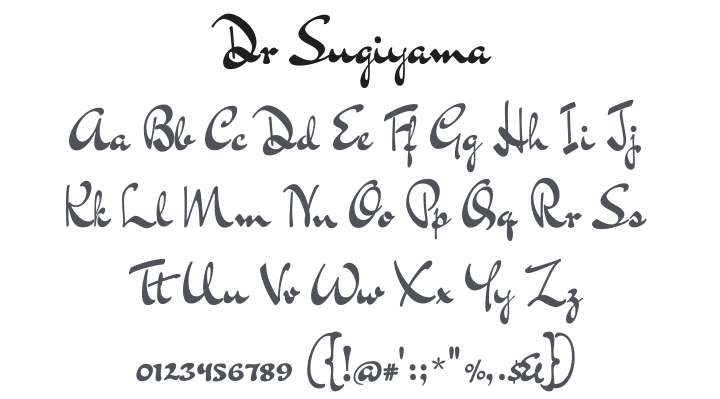 Dr Sugiyama
Aa Bb Cc Dd Ee Ff Gg Hh Ii Jj
Kk Ll Mm Nn Oo Pp Qq Rr Ss
Tt Uu Vv Ww Xx Yy Zz
0123456789 ({!@#':;*"%,.$&})